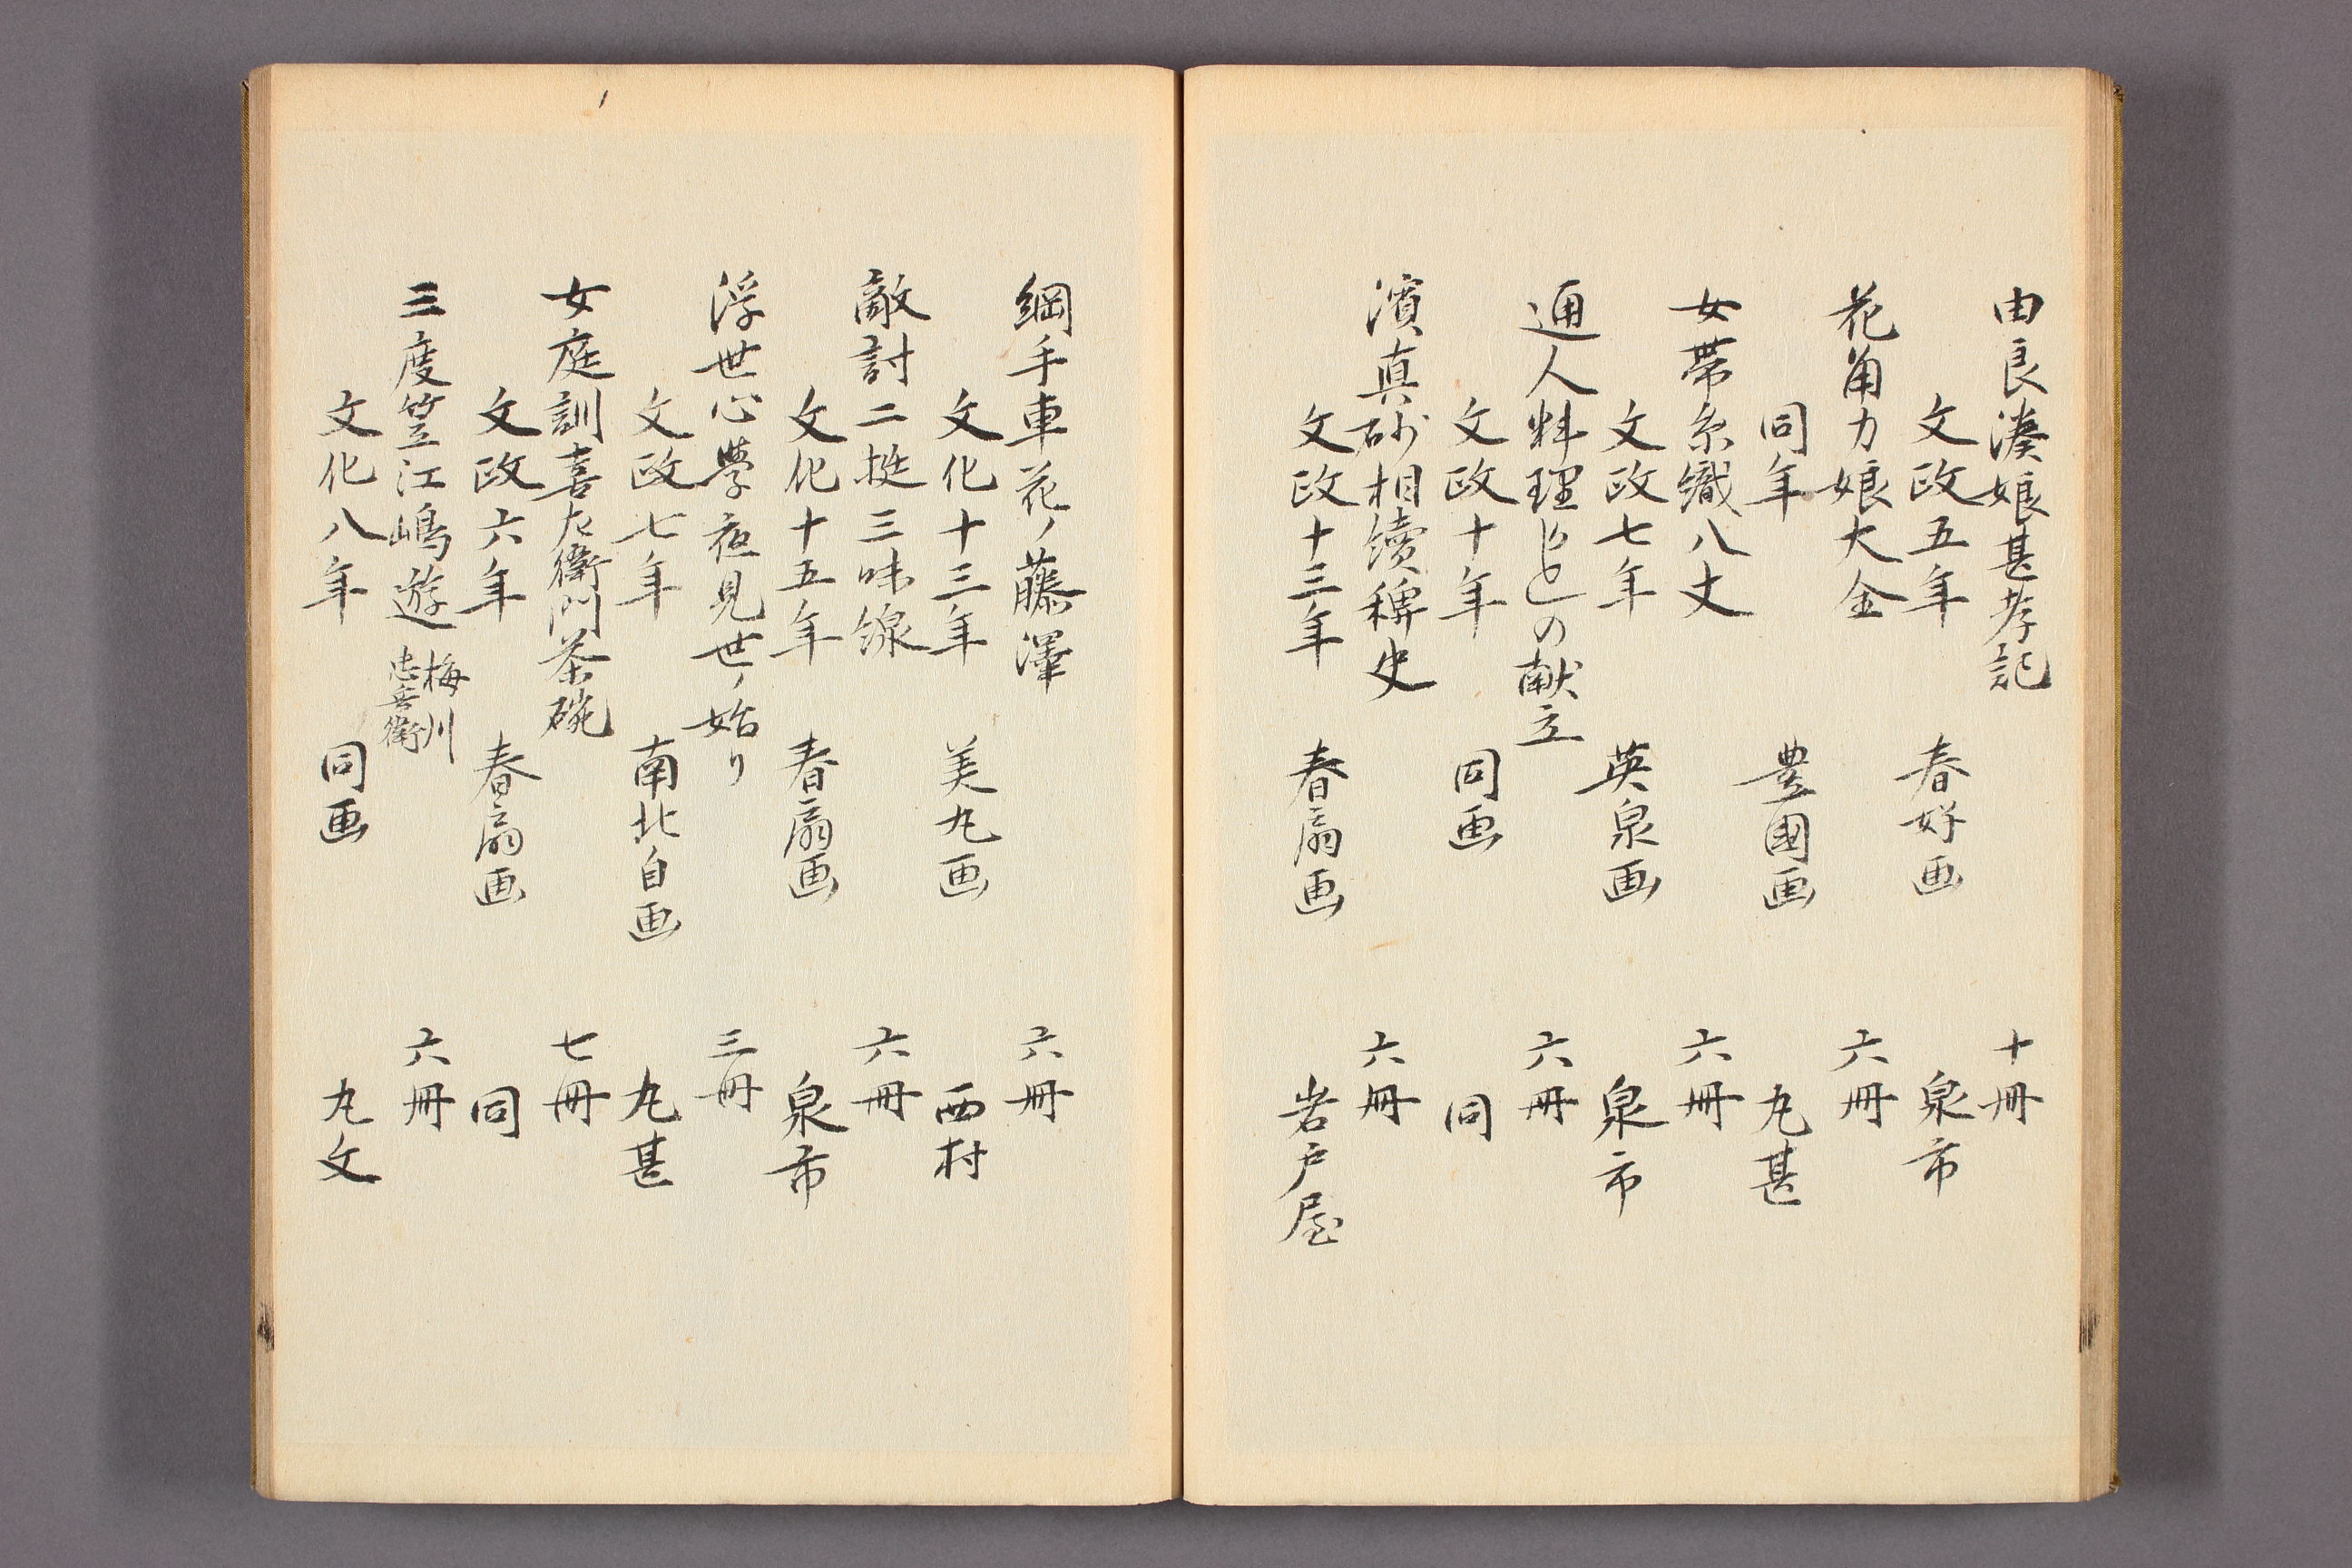 由良湊娘甚孝記 十冊
文政五年 春好画 泉市
花角力娘大全 六冊
同年 豊國画 丸甚
女帯糸織八丈 六冊
文政七年 英泉画 泉市
通人料理の献立 六冊
文政十年 同画 同
濱真砂相續稗史 六冊
文政十三年 春扇画 岩戸屋
綱手車花ノ藤澤 六冊
文化十三年 美丸画 西村
敵討二挺三味線 六冊
文化十五年 春扇画 泉市
浮世心學夜見世ノ始り 三冊
文政七年 南北自画 丸甚
女庭訓喜左衛門茶碗 七冊
文政六年 春扇画 同
三度笠江嶋遊 梅川 忠兵衛 六冊
文化八年 同画 丸文